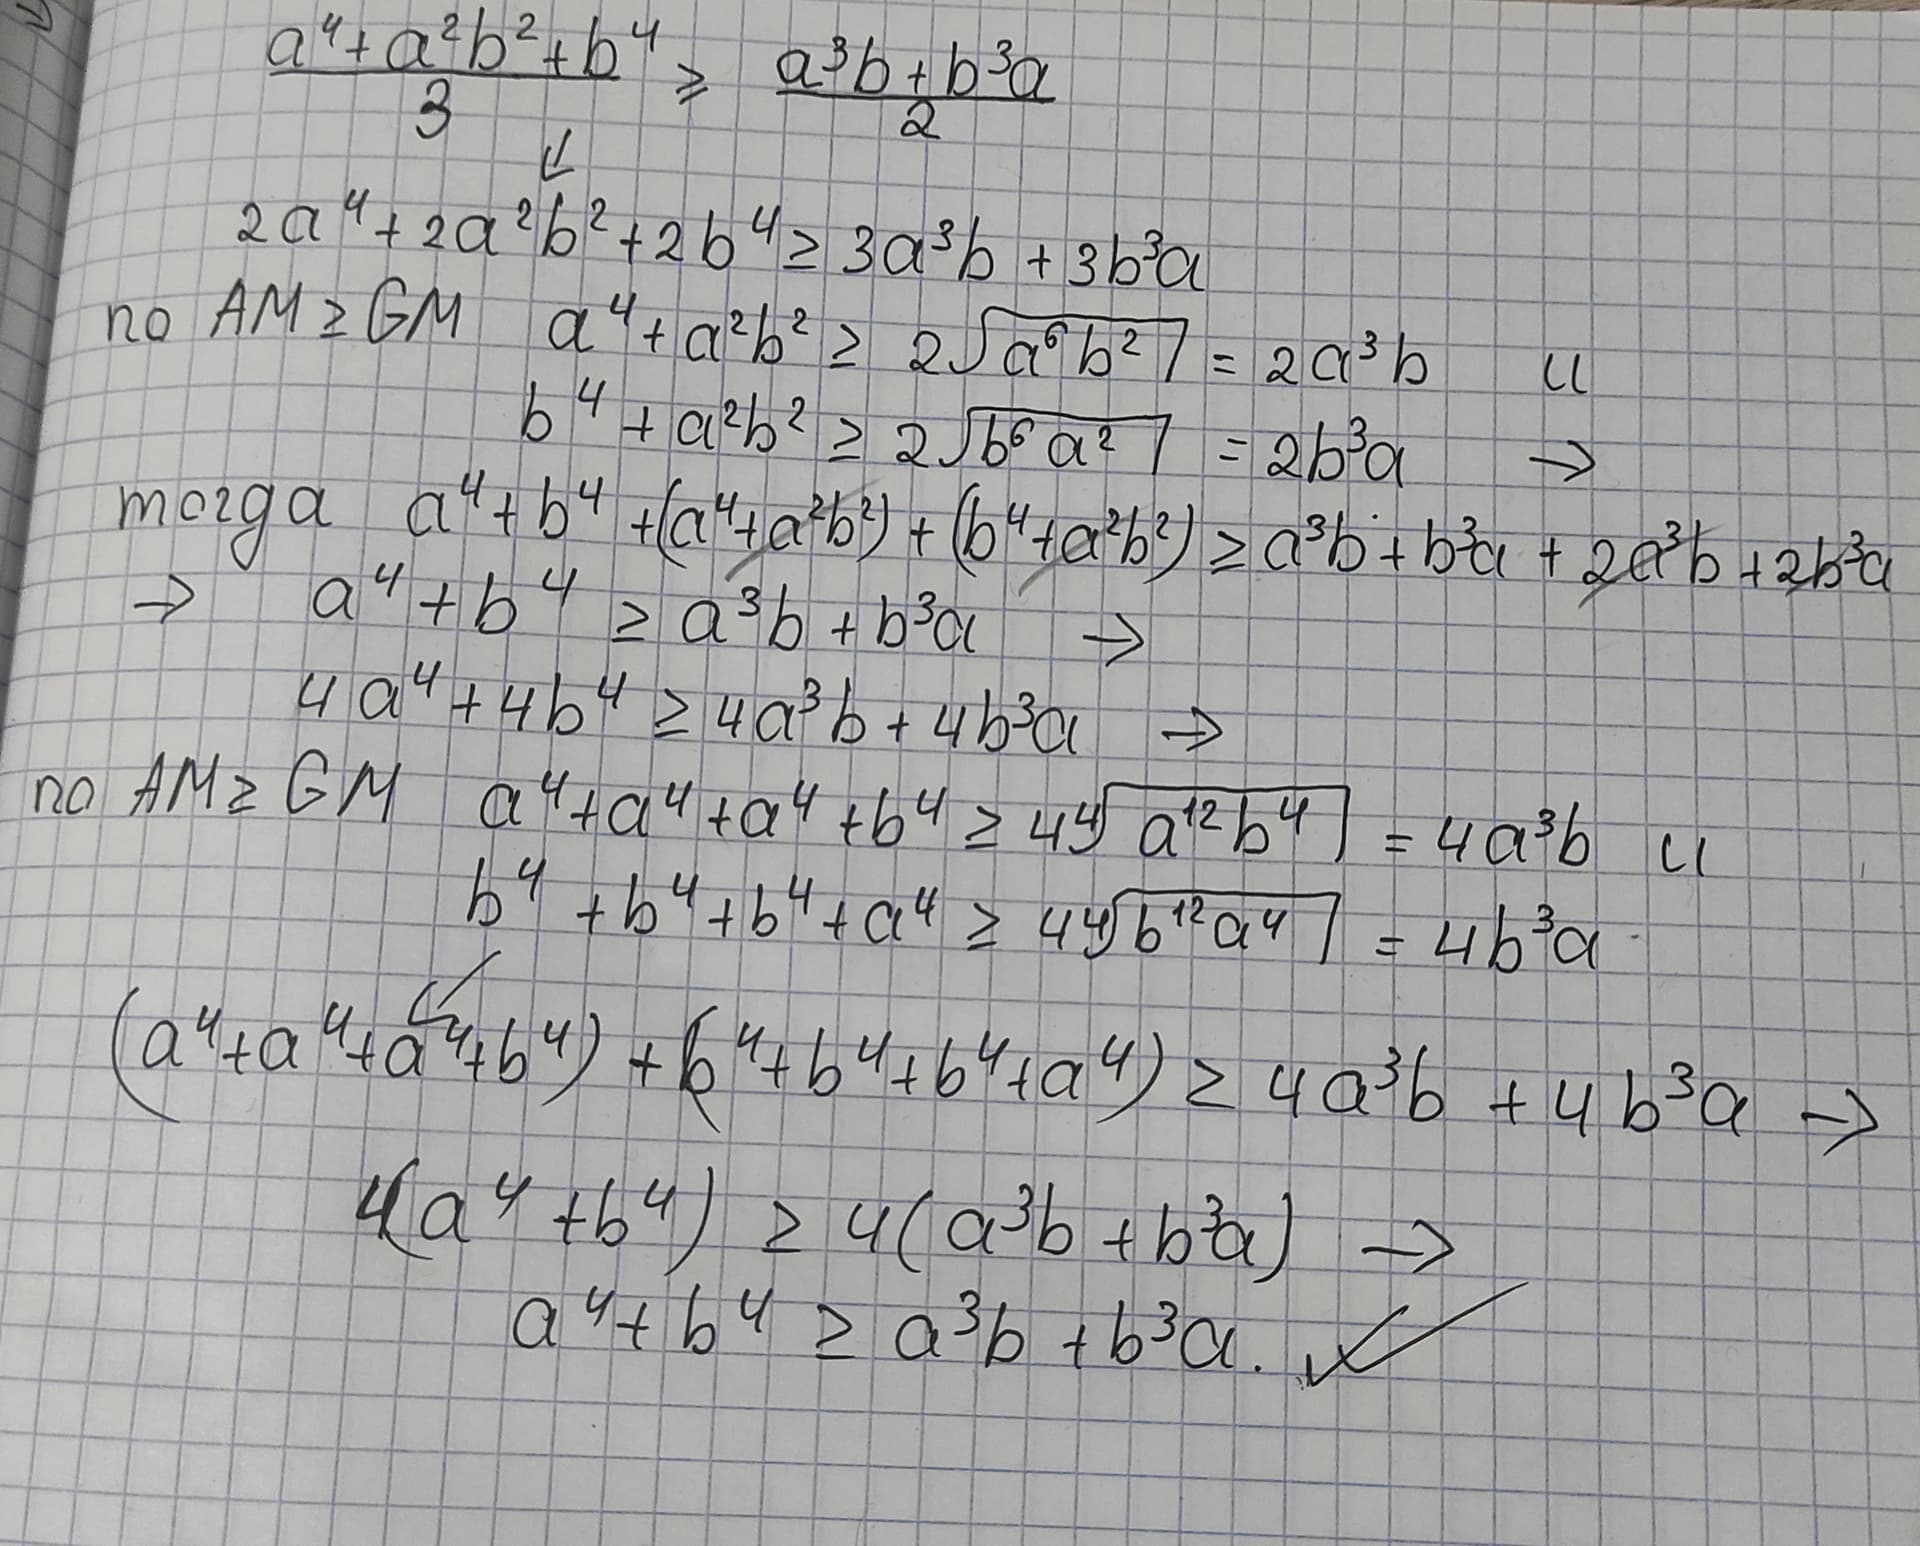 (a⁴+a²b²+b⁴)/3 ≥ (a³b+b³a)/2
2a⁴+2a²b²+2b⁴ ≥ 3a³b + 3b³a
по AM ≥ GM a⁴+a²b² ≥ 2√(a⁶b²) = 2a³b и
b⁴+a²b² ≥ 2√(b⁶a²) = 2b³a →
тогда a⁴+b⁴+(a⁴+a²b²)+(b⁴+a²b²) ≥ a³b+b³a+2a³b+2b³a
→ a⁴+b⁴ ≥ a³b+b³a →
4a⁴+4b⁴ ≥ 4a³b+4b³a →
по AM ≥ GM a⁴+a⁴+a⁴+b⁴ ≥ 4⁴√(a¹²b⁴) = 4a³b и
b⁴+b⁴+b⁴+a⁴ ≥ 4⁴√(b¹²a⁴) = 4b³a
(a⁴+a⁴+a⁴+b⁴)+(b⁴+b⁴+b⁴+a⁴) ≥ 4a³b + 4b³a →
4(a⁴+b⁴) ≥ 4(a³b+b³a) →
a⁴+b⁴ ≥ a³b+b³a. ✓